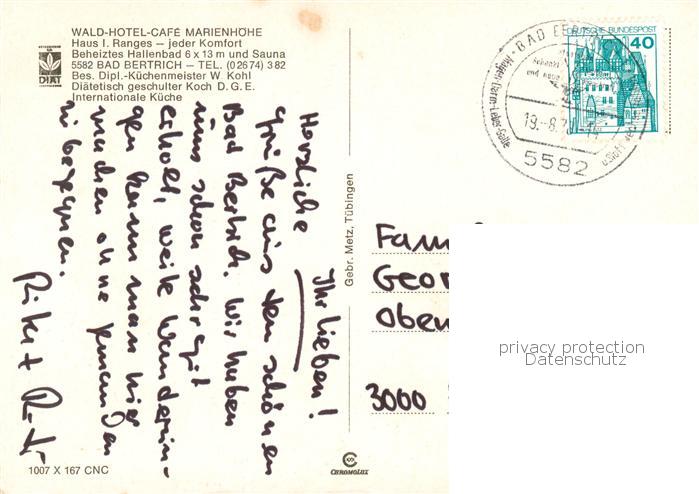 WALD-HOTEL-CAFÉ MARIENHÖHE
Haus I. Ranges — jeder Komfort
Beheiztes Hallenbad 6 x 13 m und Sauna
5582 BAD BERTRICH — TEL. (02674) 382
Bes. Dipl.-Küchenmeister W. Kohl
Diätetisch geschulter Koch D. G. E.
Internationale Küche
DIÄT
Ihr Lieben!
Herzliche
Grüße aus dem schönen
Bad Bertrich. Wir haben
uns schon sehr gut
erholt, weite Wanderun-
gen kann man hier
machen ohne jemanden
zu begegnen.
Gebr. Metz, Tübingen
DEUTSCHE BUNDESPOST
40
BAD BE
und
19.-8.7
5582
Fam
Geor
Oben
3000
privacy protection
Datenschutz
1007 X 167 CNC
CHROMOLUX